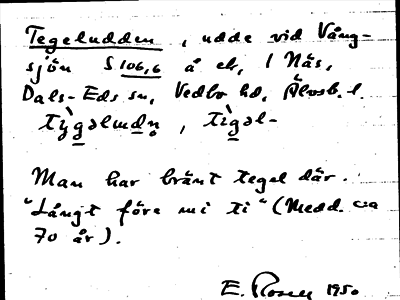 Tegeludden, udde vid Vång-
sjön S 106,6 å ek, 1 Näs,
Dals-Eds sn, Vedbo hd, Älvsb. l.
tỳgəludn̥, tìgəl-
Man har bränt tegel där.
"Långt före mi ti" (Medd. ca
70 år).
E. Rosell 1950